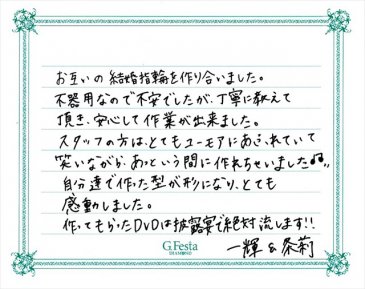 お互いの結婚指輪を作り合いました。
不器用なので不安でしたが、丁寧に教えて
頂き、安心して作業が出来ました。
スタッフの方は、とてもユーモアにあふれていて
笑いながら、あっという間に作れちゃいました♫
自分達で作った型が形になり、とても
感動しました。
作ってもらったDVDは披露宴で絶対流します!!
G.Festa
DIAMOND
一輝 & 奈莉